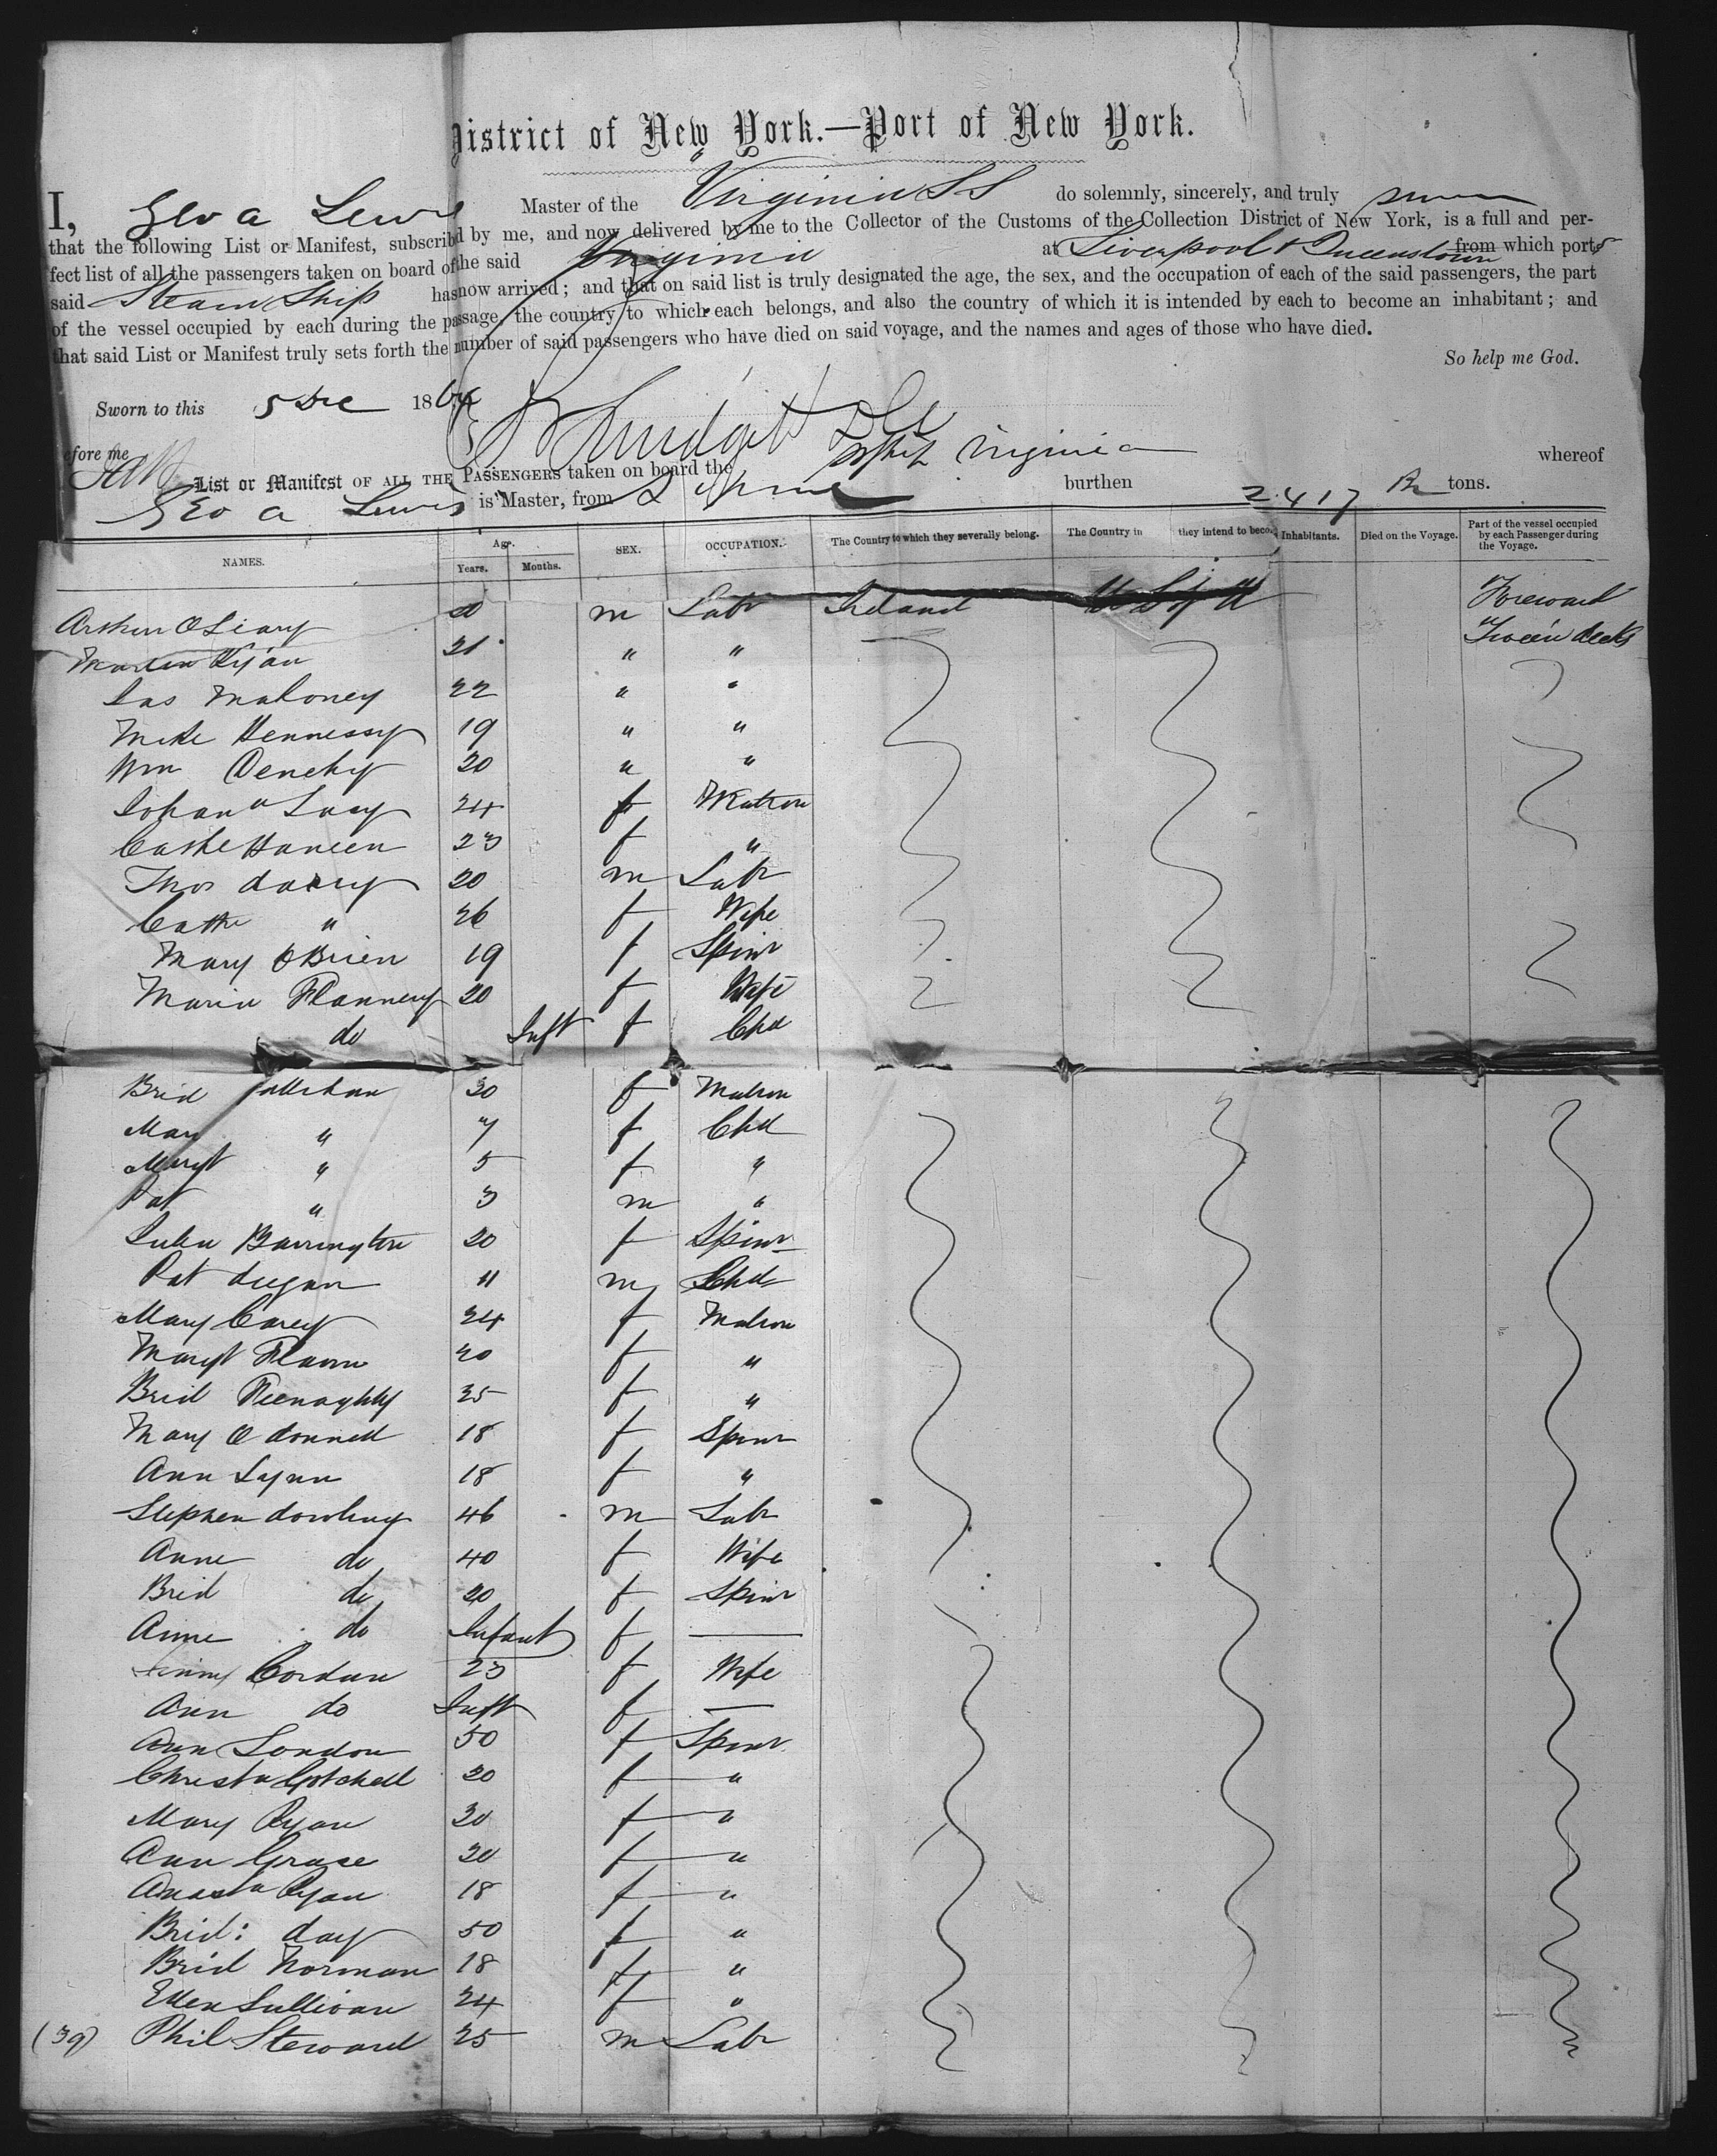 District of New York.—Port of New York.
I, Geo A Lewis Master of the Virginia SS do solemnly, sincerely, and truly swear
that the following List or Manifest, subscribd by me, and now delivered by me to the Collector of the Customs of the Collection District of New York, is a full and per-
fect list of all the passengers taken on board of the said Virginia at Liverpool & Queenstown from which ports
said Steam Ship has now arrived; and that on said list is truly designated the age, the sex, and the occupation of each of the said passengers, the part
of the vessel occupied by each during the passage, the country to which each belongs, and also the country of which it is intended by each to become an inhabitant; and
that said List or Manifest truly sets forth the number of said passengers who have died on said voyage, and the names and ages of those who have died.
So help me God.
Sworn to this 5 Dec 186
efore me
List or Manifest OF ALL THE PASSENGERS taken on board the Virginia whereof
Geo A Lewis is Master, from burthen 2417 tons.
NAMES. Age. Years. Months. SEX. OCCUPATION. The Country to which they severally belong. The Country in they intend to beco. Inhabitants. Died on the Voyage. Part of the vessel occupied by each Passenger during the Voyage.
Arthur O Leary 20 m Labr Ireland U S of A Foreward
Martin Ryan 21 " " Tween decks
Jas Mahoney 22 " "
Mike Hennessy 19 " "
Wm Denehy 20 " "
Johana Lucy 24 f Matron
Cathe Haneen 23 f "
Thos dacey 20 m Labr
Cathe " 26 f Wife
Mary O Brien 19 f Spinr
Maria Flannery 20 f Wife
do Inft f Chd
Brid Callahan 30 f Matron
Mary " 7 f Chd
Margt " 5 f "
Pat " 3 m "
Julia Barrington 20 f Spinr
Pat dugan 11 m Chd
Mary Carey 24 f Matron
Margt Flavin 40 f "
Brid Feenaghty 25 f "
Mary O donnell 18 f Spinr
Ann Lynn 18 f "
Stephen dowling 46 m Labr
Anne do 40 f Wife
Brid do 20 f Spinr
Anne do Infant f —
Cordun 23 f Wife
Ann do Inft f —
Ann London 50 f Spinr
Christa Gotchell 20 f "
Mary Ryan 30 f "
Ann Grace 30 f "
Anasta Ryan 18 f "
Brid: day 50 f "
Brid Norman 18 f "
Ellen Sullivan 24 f "
(39) Phil Steward 25 m Labr